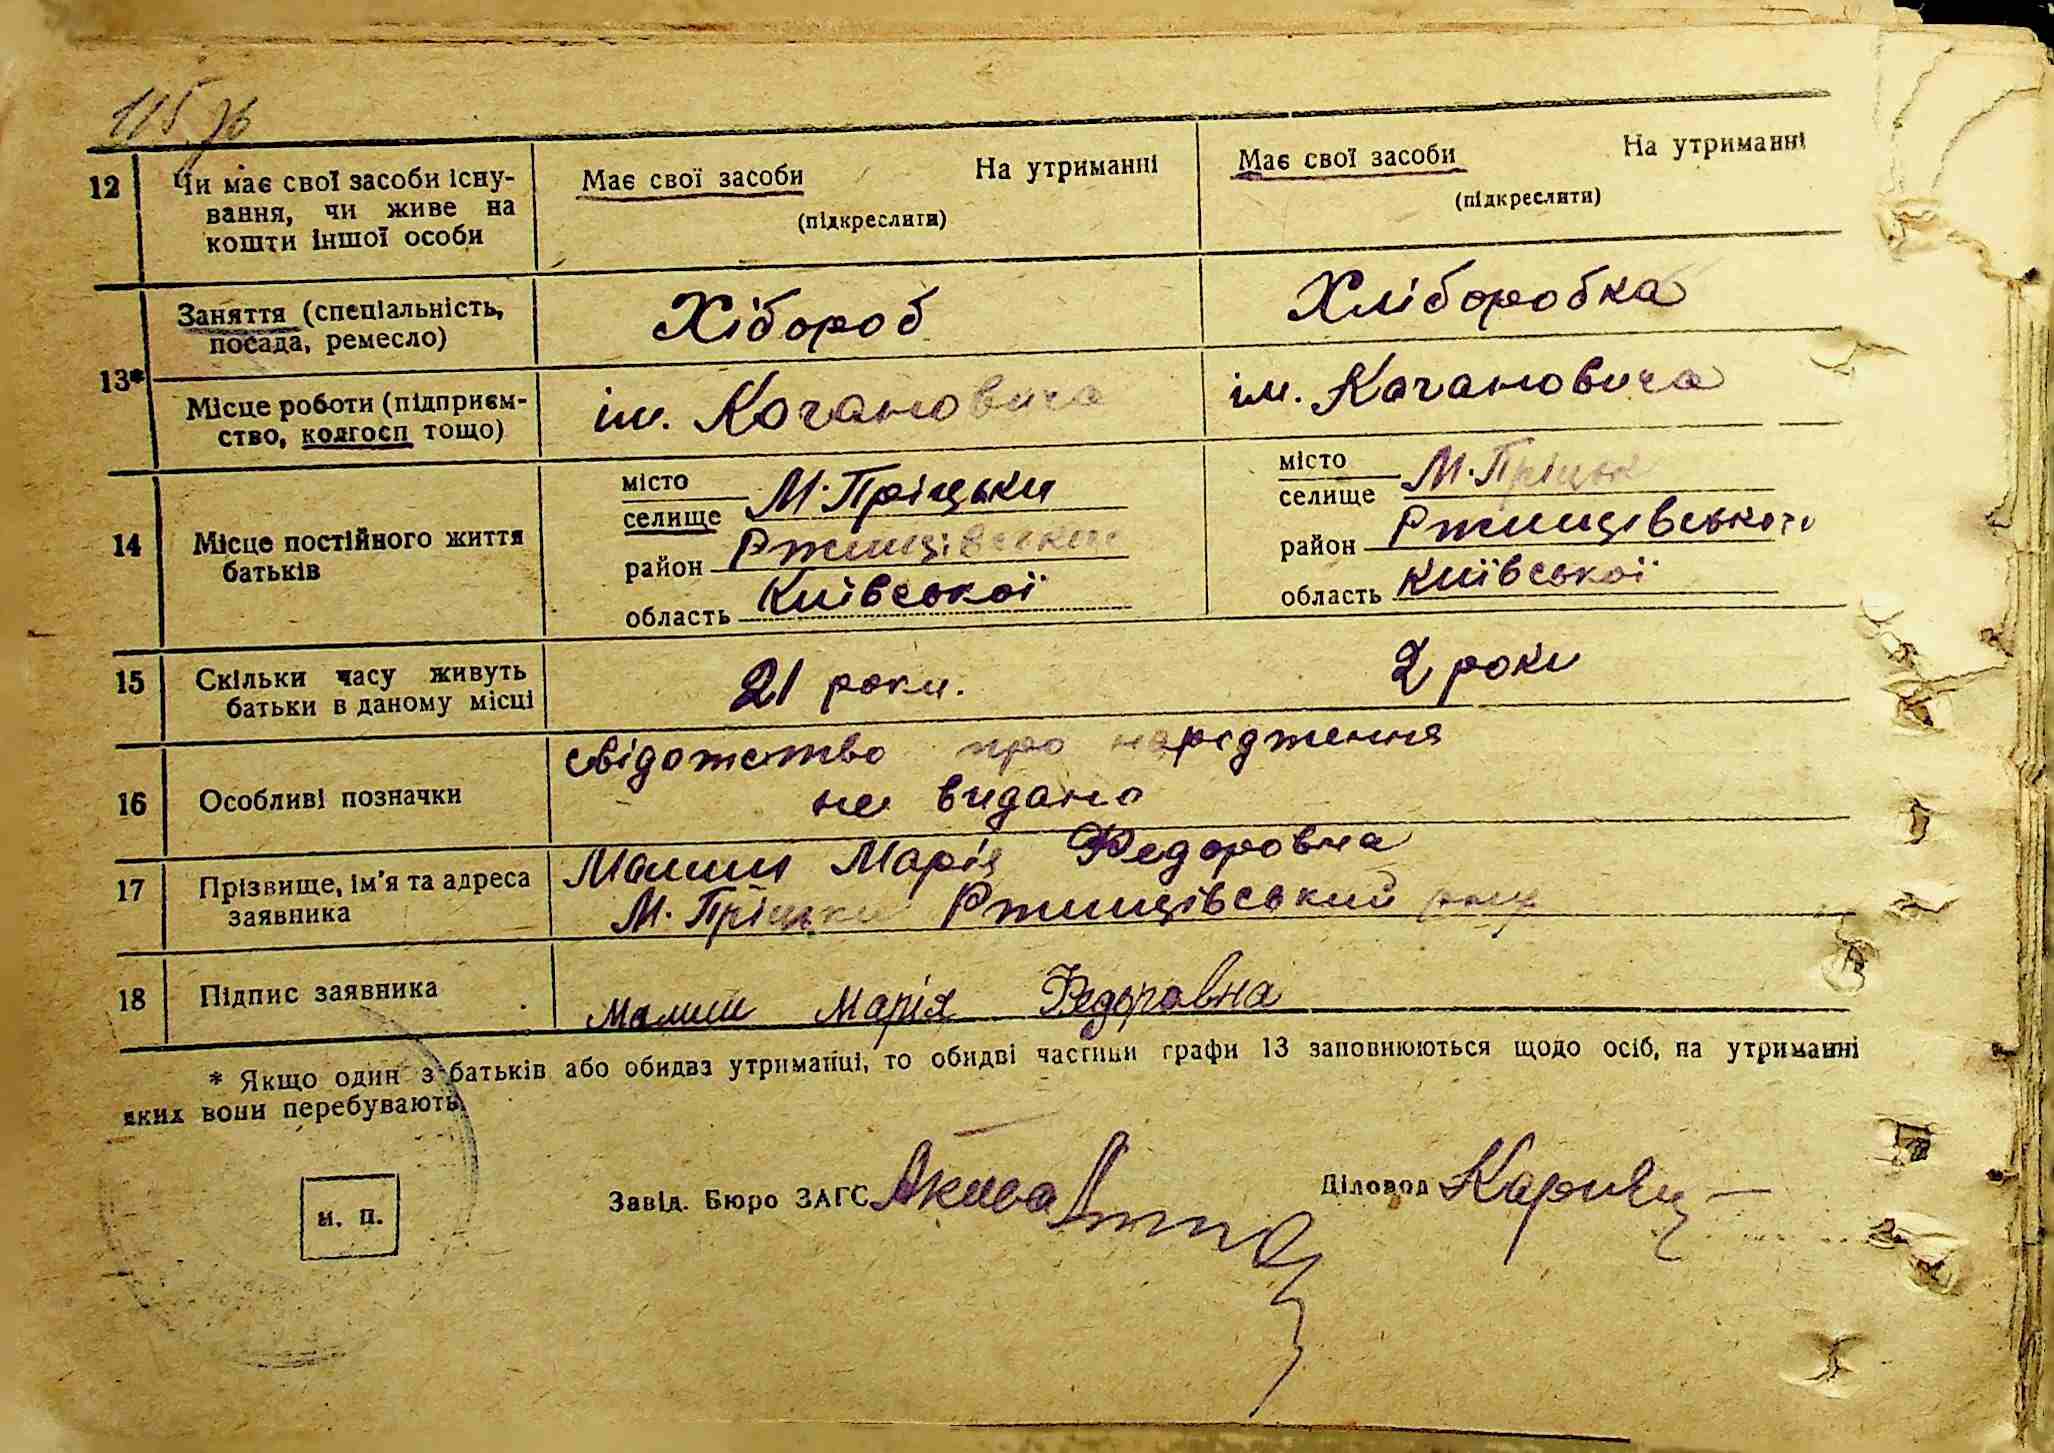 115 зб
12 Чи має свої засоби існу- Має свої засоби На утриманні Має свої засоби На утриманні
вання, чи живе на (підкреслити) (підкреслити)
кошти іншої особи
13* Заняття (спеціальність, Хібороб Хліборобка
посада, ремесло)
Місце роботи (підприєм- ім. Кагановича ім. Кагановича
ство, колгосп тощо)
14 Місце постійного життя батьків
місто
селище М. Пріцьки
район Ржищівський
область Київської
місто
селище М. Пріцьк
район Ржищівського
область Київської
15 Скільки часу живуть 21 роки. 2 роки
батьки в даному місці
16 Особливі позначки свідотство про народження
не видано
17 Прізвище, ім'я та адреса Малиш Марія Федоровна
заявника М. Пріцьки Ржищівський р-ну
18 Підпис заявника Малиш Марія Федоровна
* Якщо один з батьків або обидва утриманці, то обидві частини графи 13 заповнюються щодо осіб, на утриманні
яких вони перебувають.
м. п.
Завід. Бюро ЗАГС Діловод